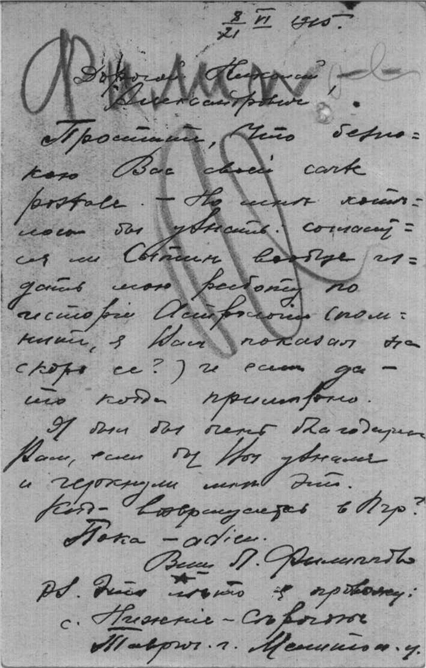 8/21 VI 1915.
Дорогой Николай
Александрович,
Простите, что безпо=
кою Вас своей carte
postale. – Но мне хоте=
лось бы узнать: согласит=
ся ли Сытин вообще из=
дать мою работу по
истории Астрологии (пом-
ните, я Вам показал на
скоро ее?) и если да –
то когда примерно.
Я был бы очень благодарен
Вам, если бы Вы узнали
и черкнули мне это.
Когда возвращаетесь в Птр?
Пока – adieu.
Ваш
PS. Это лето я провожу:
с. Нижние-Серогозы
Таврич. г. Мелитоп. у.